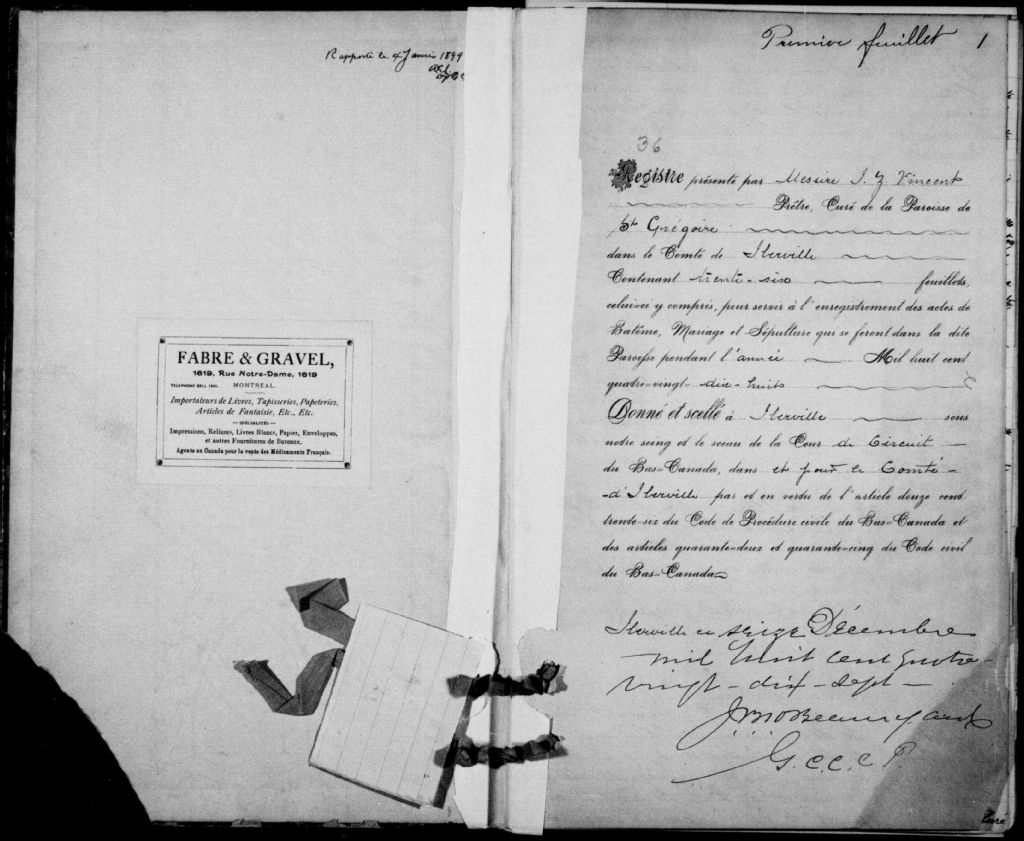 Rapporté le 4 Janvier 1899
FABRE & GRAVEL,
1619, Rue Notre-Dame, 1619
TELEPHONE BELL
MONTREAL.
Importateurs de Livres, Tapisseries, Papeteries,
Articles de Fantaisie, Etc., Etc.
— SPÉCIALITÉS —
Impressions, Reliures, Livres Blancs, Papier, Enveloppes,
et autres Fournitures de Bureaux.
Agents au Canada pour la vente des Médicaments Français.
Premier feuillet 1
36
Registre présenté par Messire J. Vincent
Prêtre, Curé de la Paroisse de
St Grégoire
dans le Comté de Iberville
Contenant trente-six feuillets,
celui-ci y compris, pour servir à l'enregistrement des actes de
Batême, Mariage et Sépulture qui se feront dans la dite
Paroisse pendant l'année Mil huit cent
quatre-vingt-dix-huit
Donné et scellé à Iberville sous
notre seing et le sceau de la Cour de Circuit
du Bas-Canada, dans et pour le Comté
d'Iberville par et en vertu de l'article douze cent
trente-six du Code de Procédure civile du Bas-Canada et
des articles quarante-deux et quarante-cinq du Code civil
du Bas-Canada
Iberville ce seize Décembre
mil huit cent quatre-
vingt-dix-sept
G.C.C.C.P.
Curé